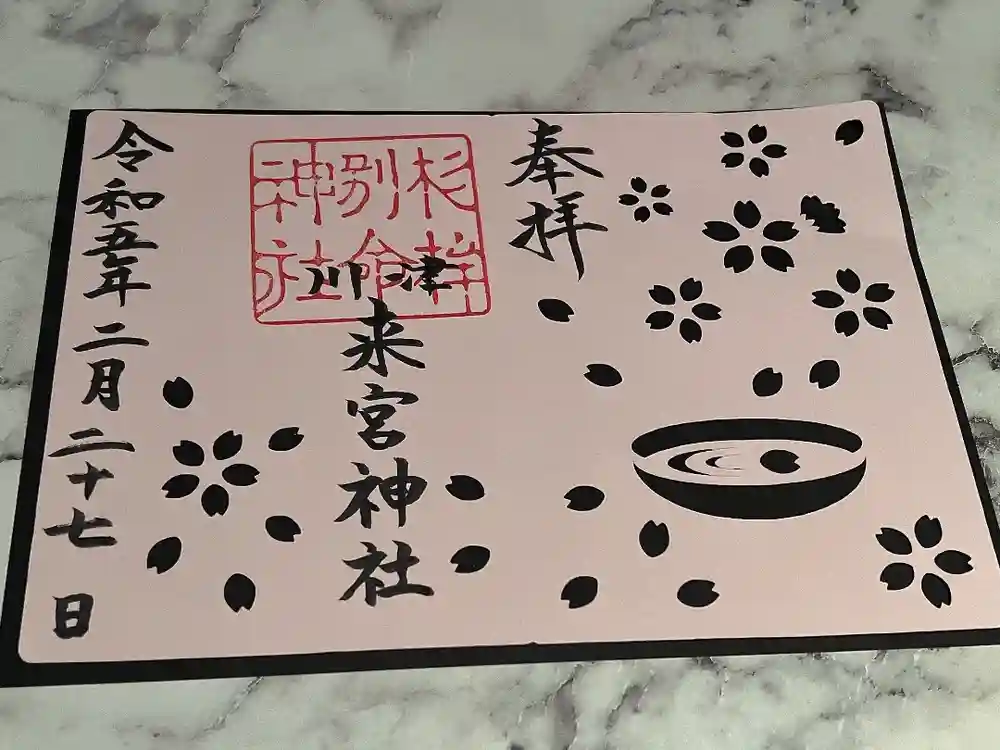 奉拝
川津
来宮神社
杉桙
別命
神社
令和五年二月二十七日